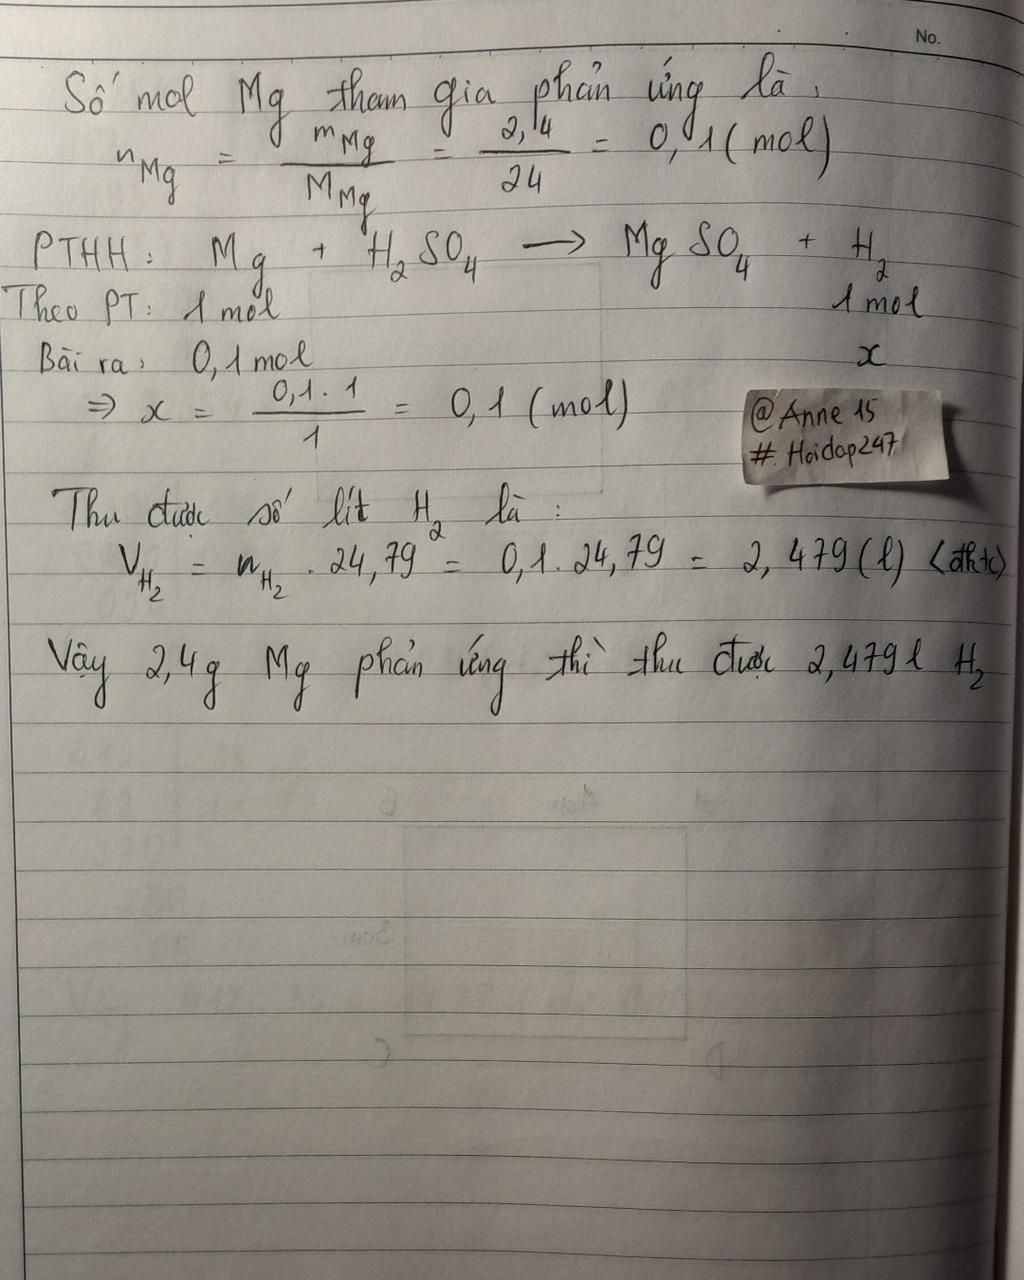 No.
Số mol Mg tham gia phản ứng là:
n_Mg = m_Mg / M_Mg = 2,4 / 24 = 0,1 (mol)
PTHH: Mg + H₂SO₄ → MgSO₄ + H₂
Theo PT: 1 mol 1 mol
Bài ra: 0,1 mol x
⇒ x = 0,1 . 1 / 1 = 0,1 (mol)
@Anne 15
# Hoidap247
Thu được số lít H₂ là:
V_H₂ = n_H₂ . 24,79 = 0,1 . 24,79 = 2,479 (l) (đktc)
Vậy 2,4g Mg phản ứng thì thu được 2,479 l H₂